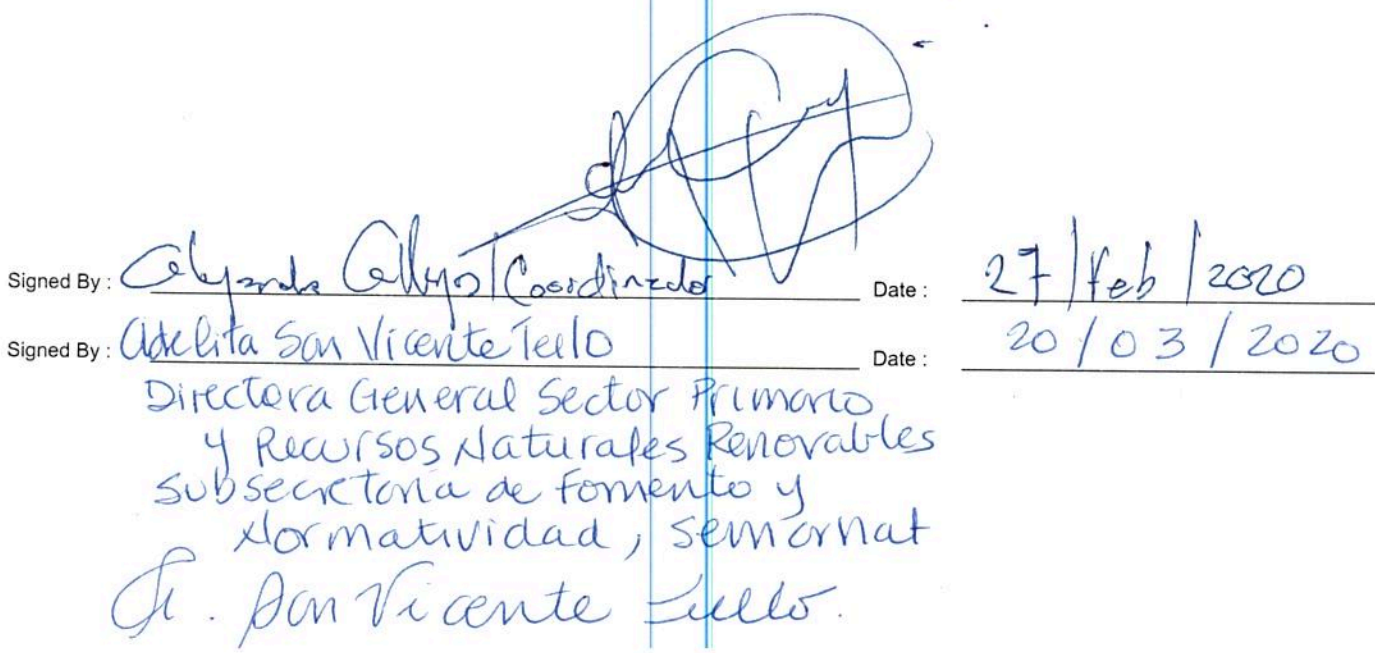 Signed By : Coordinador Date : 27/feb/2020
Signed By : Adelita San Vicente Tello Date : 20/03/2020
Directora General Sector Primario
y Recursos Naturales Renovables
Subsecretaria de Fomento y
Normatividad, Semarnat
San Vicente Tello.